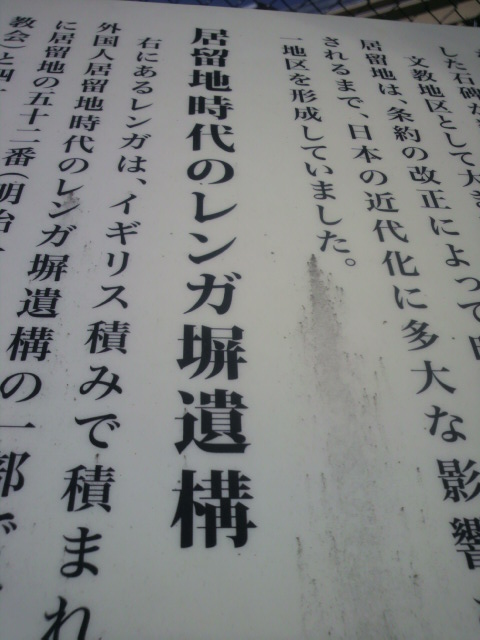 した石碑が
文教地区として大き
居留地は、条約の改正によって
されるまで、日本の近代化に多大な影響
一地区を形成していました。
居留地時代のレンガ塀遺構
右にあるレンガは、イギリス積みで積まれ
外国人居留地時代のレンガ塀遺構の一部で
に居留地の五十二番(明治
教会)と四十